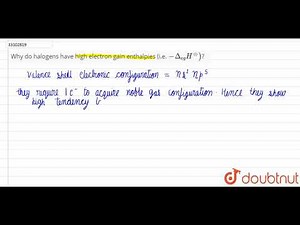 Why do halogens have high electron gain enthalpies (i.e. −Δ_eg H^⊖)?
Valence shell electronic configuration = ns² np⁵
they require 1e⁻ to acquire noble gas configuration. Hence they show
high tendency (
doubtnut